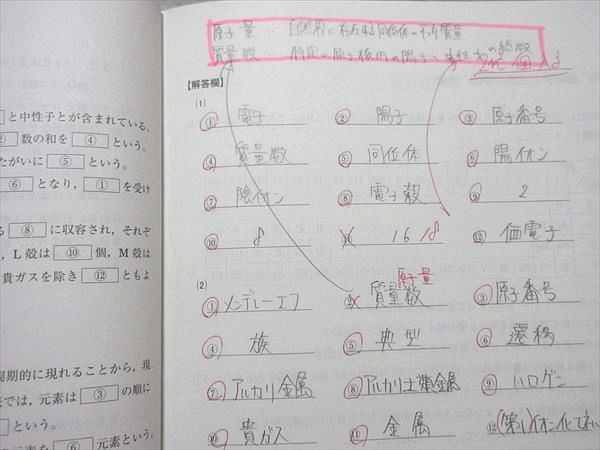 原子量 … 自然界に存在する同位体の平均質量
質量数 … 特定の原子核内の陽子と中性子の総数
2n² 個 入る
【解答欄】
(1)
① 電子 ② 陽子 ③ 原子番号
④ 質量数 ⑤ 同位体 ⑥ 陽イオン
⑦ 陰イオン ⑧ 電子殻 ⑨ 2
⑩ 8 ⑪ 16 18 ⑫ 価電子
(2)
原子量
① メンデレーエフ ② 質量数 ③ 原子番号
④ 族 ⑤ 典型 ⑥ 遷移
⑦ アルカリ金属 ⑧ アルカリ土類金属 ⑨ ハロゲン
⑩ 貴ガス ⑪ 金属 ⑫ (第1)イオン化エネ
と中性子とが含まれている。
数の和を ④ という。
たがいに ⑤ という。
⑥ となり, ① を受け
る ⑧ に収容され, それぞ
, L殻は ⑩ 個, M殻は
貴ガスを除き ⑫ ともよ
周期的に現れることから, 現
では, 元素は ③ の順に
という。
元素を ⑥ 元素という。